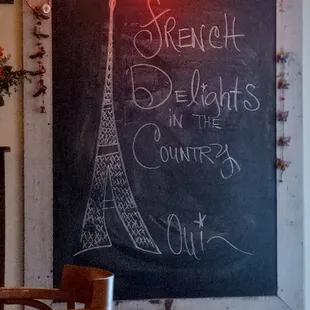 French
Delights
in the
Country
Oui